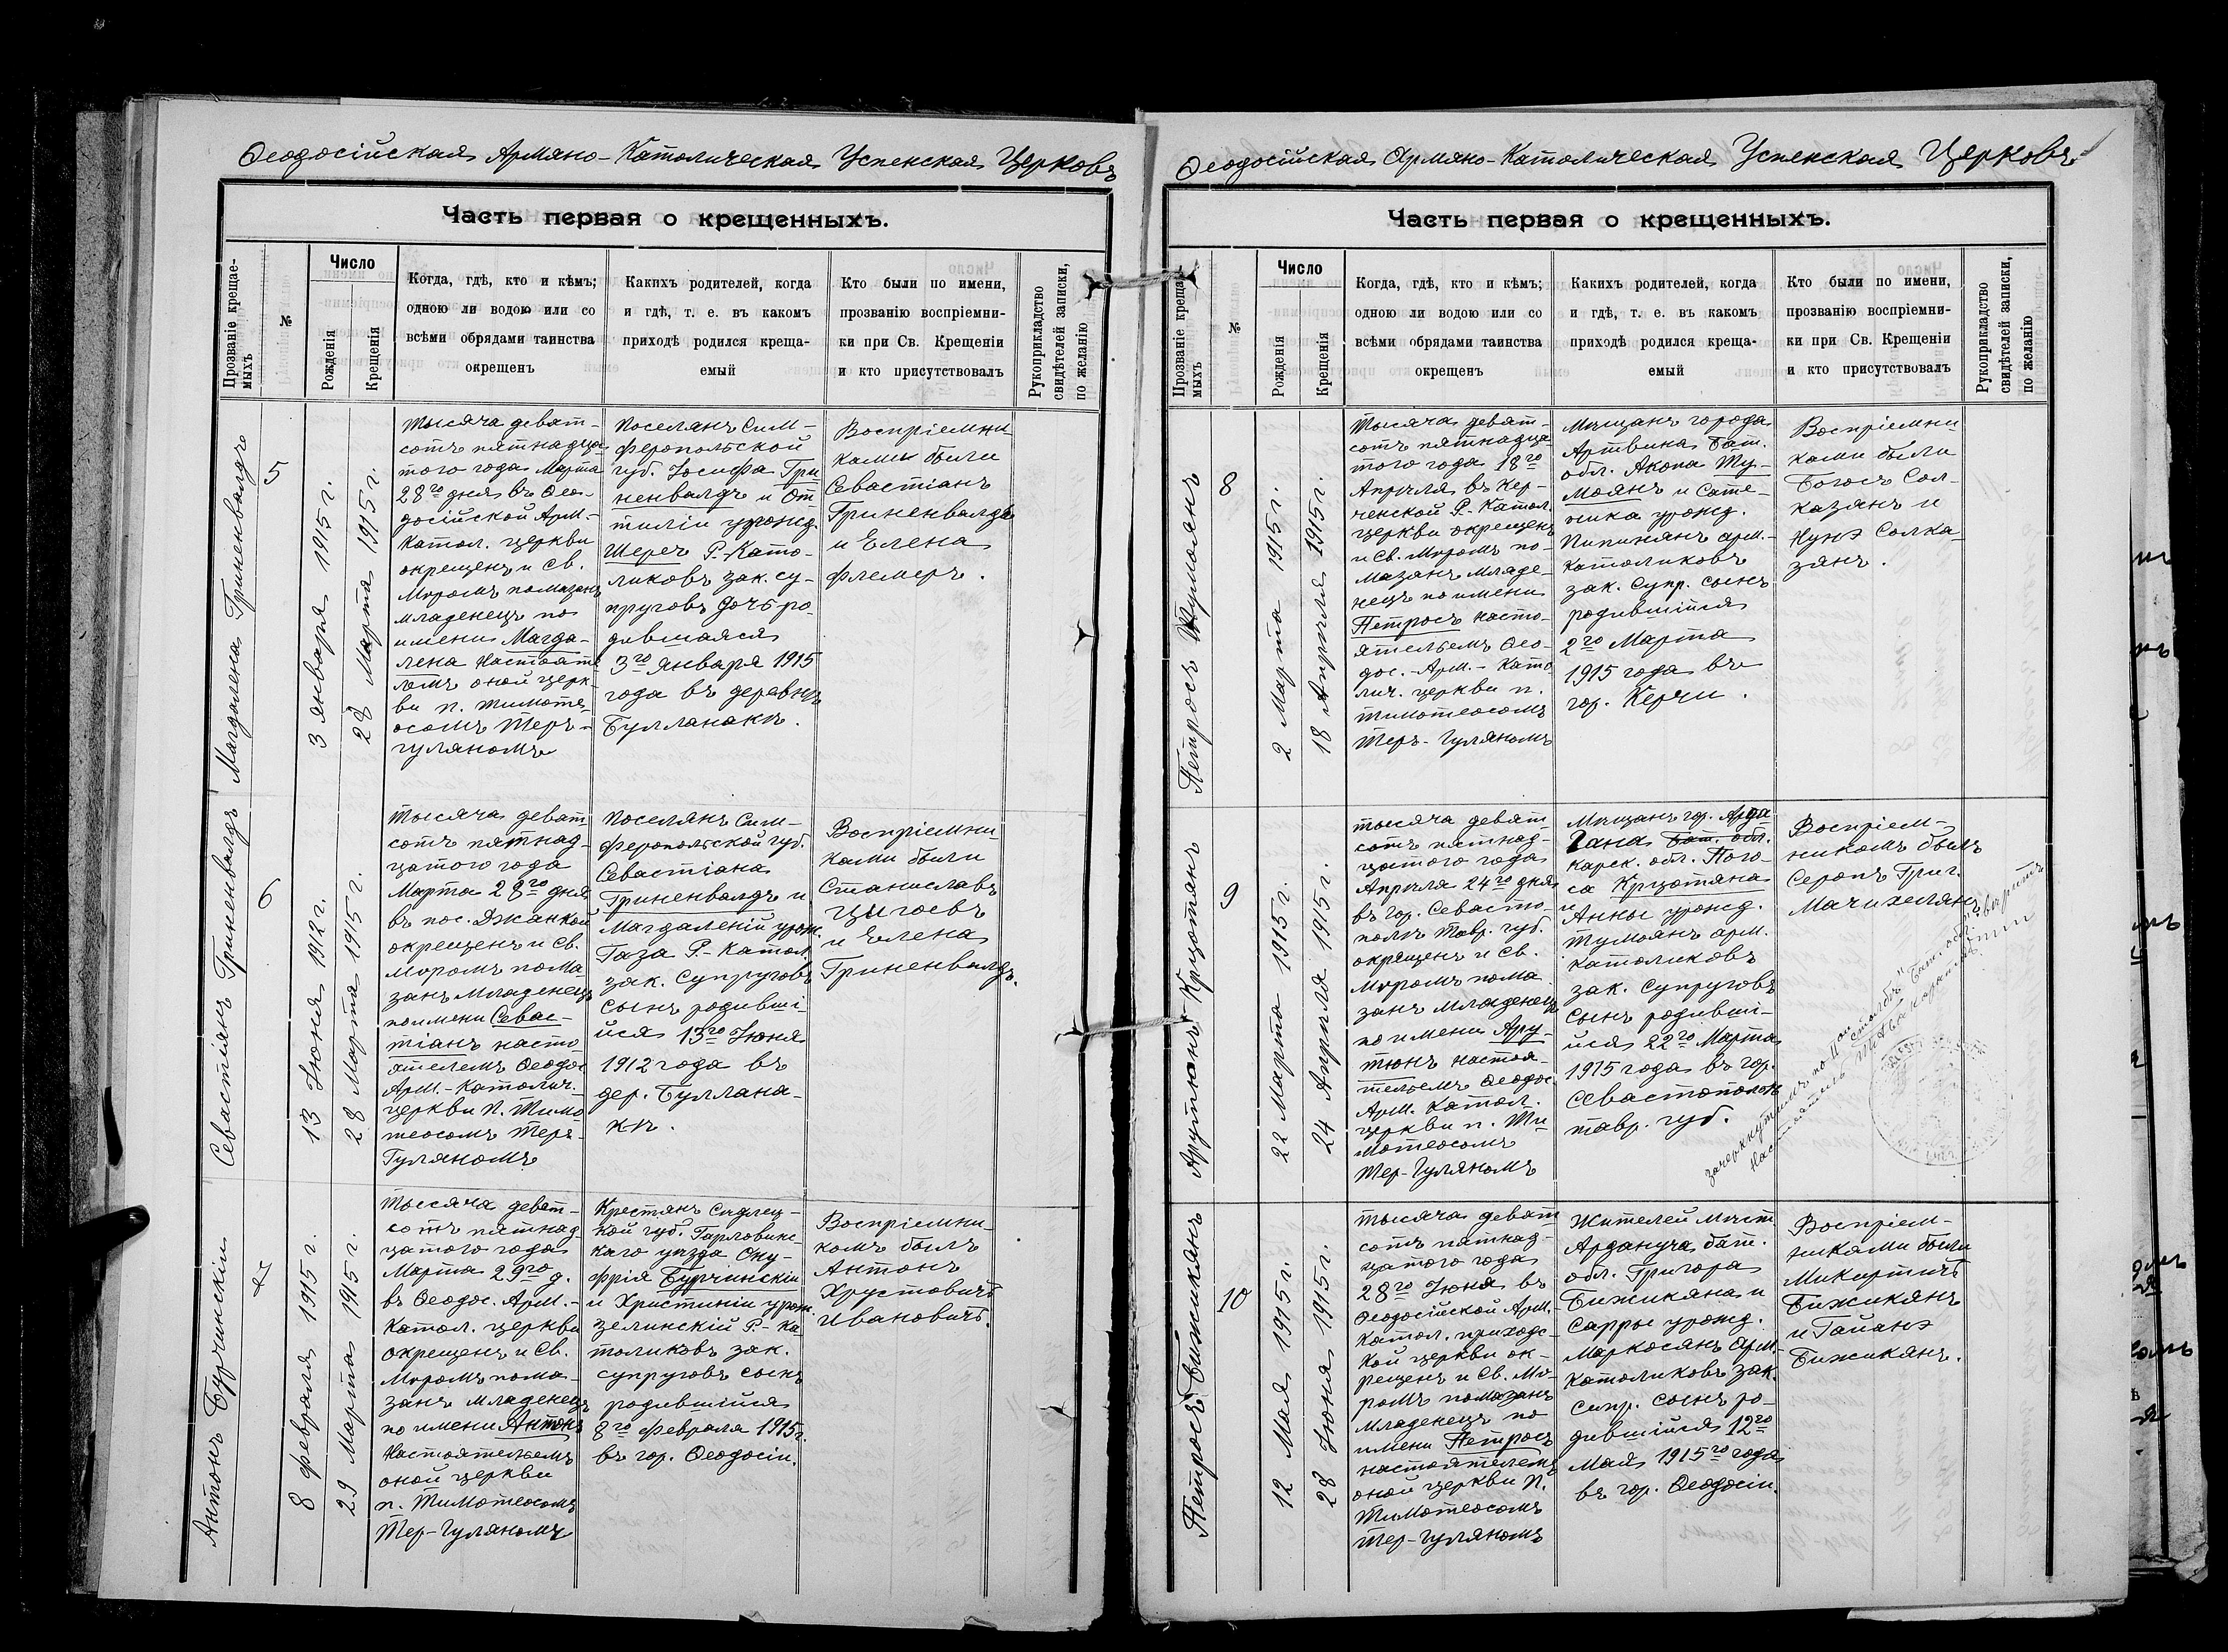 Ѳеодосійская Армяно-Католическая Успенская Церковь
Часть первая о крещенныхъ.
Прозваніе крещае-
мыхъ
№
Число
Рожденія
Крещенія
Когда, гдѣ, кто и кѣмъ;
одною ли водою или со
всѣми обрядами таинства
окрещенъ
Какихъ родителей, когда
и гдѣ, т. е. въ какомъ
приходѣ родился креща-
емый
Кто были по имени,
прозванію воспріемни-
ки при Св. Крещеніи
и кто присутствовалъ
Рукоприкладство
свидѣтелей записки,
по желанію
Магдалена Гриненвалдъ
5
3 января 1915 г.
28 Марта 1915 г.
Тысяча девят-
сотъ пятнадца-
того года Марта
28го дня въ Ѳео-
досійской Арм.-
Катол. церкви
окрещенъ и Св.
Мѵромъ помазанъ
младенецъ по
имени Магда-
лена Настояте-
лемъ оной церк-
ви п. Тимоте-
осомъ Теръ-
Гуляномъ
Поселянъ Сим-
феропольской
губ. Іосифа Гри
ненвалдъ и От
тиліи урожд.
Шереръ Р.-Като-
ликовъ зак. су-
пруговъ дочь ро-
дившаяся
3го Января 1915
года въ деревнѣ
Булланакъ.
Воспріемни-
ками были
Севастіанъ
Гриненвалдъ
и Елена
Флемеръ.
Севастіянъ Гриненвалдъ
6
13 Іюня 1912 г.
28 Марта 1915 г.
Тысяча девят
сотъ пятнад-
цатого года
Марта 28го дня
въ пос. Джанкой
окрещенъ и Св.
Мѵромъ пома
занъ Младенецъ
по имени Севас-
тіанъ насто
ятелемъ Ѳеодос
Арм.-Католич.
церкви П. Тимо
теосомъ Теръ-
Гуляномъ
Поселянъ Сим-
феропольской губ.
Севастіана
Гриненвалдъ и
Магдаленій урож.
Газа Р.-Катол.
зак. Супруговъ
Сынъ родивші-
йся 13го Іюня
1912 года въ
дер. Буллана-
къ.
Воспріемни-
ками были
Станиславъ
Цигоевъ
и Елена
Гриненвалдъ.
Антонъ Бурчинскій
7
8 Февраля 1915 г.
29 Марта 1915 г.
Тысяча девят-
сотъ пятнад-
цатого года
Марта 29го д.
въ Ѳеодос. Арм.-
Катол. церкви
окрещенъ и Св.
Мѵромъ пома-
занъ младенецъ
по имени Антонъ
Настоятельемъ
оной церкви
п. Тимотеосомъ
Тер-Гуляномъ
Крестянъ Сидлец-
кой губ. Гарловинс-
каго уѣзда Ону-
фрія Бурчинскій
и Христиніи урож.
Зелинскій Р.-Ка-
толиковъ зак.
супруговъ сынъ
родившійся
8го Февраля 1915 г.
въ гор. Ѳеодосіи.
Воспріемни-
комъ былъ
Антонъ
Хрустовичъ
Ивановичъ.
Ѳеодосійская Армяно-Католическая Успенская Церковь
Часть первая о крещенныхъ.
Прозваніе крещае-
мыхъ
№
Число
Рожденія
Крещенія
Когда, гдѣ, кто и кѣмъ;
одною ли водою или со
всѣми обрядами таинства
окрещенъ
Какихъ родителей, когда
и гдѣ, т. е. въ какомъ
приходѣ родился креща-
емый
Кто были по имени,
прозванію воспріемни-
ки при Св. Крещеніи
и кто присутствовалъ
Рукоприкладство
свидѣтелей записки,
по желанію
Петросъ Тумоянъ
8
2 Марта 1915 г.
18 Апрѣля 1915 г.
Тысяча девят-
сотъ пятнадца-
того года 18го
Апрѣля въ Кер-
ченской Р.-Катол.
церкви окрещенъ
и Св. Мѵромъ по-
мазанъ Младе-
нецъ по имени
Петросъ насто-
ятельемъ Ѳео-
дос.-Арм.-Като
лич. церкви п.
Тимотеосомъ
Теръ-Гуляномъ
Мѣщанъ города
Артвина Бат.
обл. Акопа Ту-
моянъ и Сате-
ника урожд.
Пипинянъ арм.-
Католиковъ
зак. Супр. сынъ
родившійся
2го Марта
1915 года въ
гор. Керчи.
Воспріемни-
ками были
Богосъ Сол-
казянъ и
Нунэ Солка-
зянъ.
Арутюнъ Крцотянъ
9
22 Марта 1915 г.
24 Апрѣля 1915 г.
Тысяча девят
сотъ пятнад-
цатого года
Апрѣля 24го дня
въ гор. Севасто-
полѣ Тавр. губ.
окрещенъ и Св.
Мѵромъ пома
занъ Младенецъ
по имени Ару-
тюнъ настоя-
тельемъ Ѳеодос.
Арм. Катол.
церкви п. Ти-
мотеосомъ
Тер-Гуляномъ
Мѣщанъ гор. Арда
гана Бат. обл.
Карск. обл. Пого-
са Крцотяна
и
Анны урожд.
Тумоянъ арм.
католиковъ
зак. Супруговъ
Сынъ родивші-
йся 22го Марта
1915 года въ гор.
Севастополѣ
тавр. губ.
Воспріем-
никомъ былъ
Серопъ Григ.
Мачихелянъ
зачеркнутымъ по II ой столбъ "Бат. обл." вѣрить
Настоятель
Петросъ Бижикянъ
10
12 Мая 1915 г.
28 Іюня 1915 г.
Тысяча девят
сотъ пятнад-
цатого года
28го Іюня въ
Ѳеодосійской Арм.-
Катол. приходс-
кой церкви ок-
рещенъ и Св. Мѵ-
ромъ помазанъ
младенецъ по
имени Петросъ
настоятелемъ
оной церкви П.
Тимотеосомъ
Тер-Гуляномъ
Жителей мѣст.
Ардануча бат.
обл. Григора
Бижикяна и
Сарры урожд.
Маркосянъ арм.-
Католиковъ зак.
Супр. сынъ ро-
дившійся 12го
Мая 1915го года
въ гор. Ѳеодосіи.
Воспріем-
никами были
Микиртичъ
Бижикянъ
и Гаianэ
Бижикянъ.